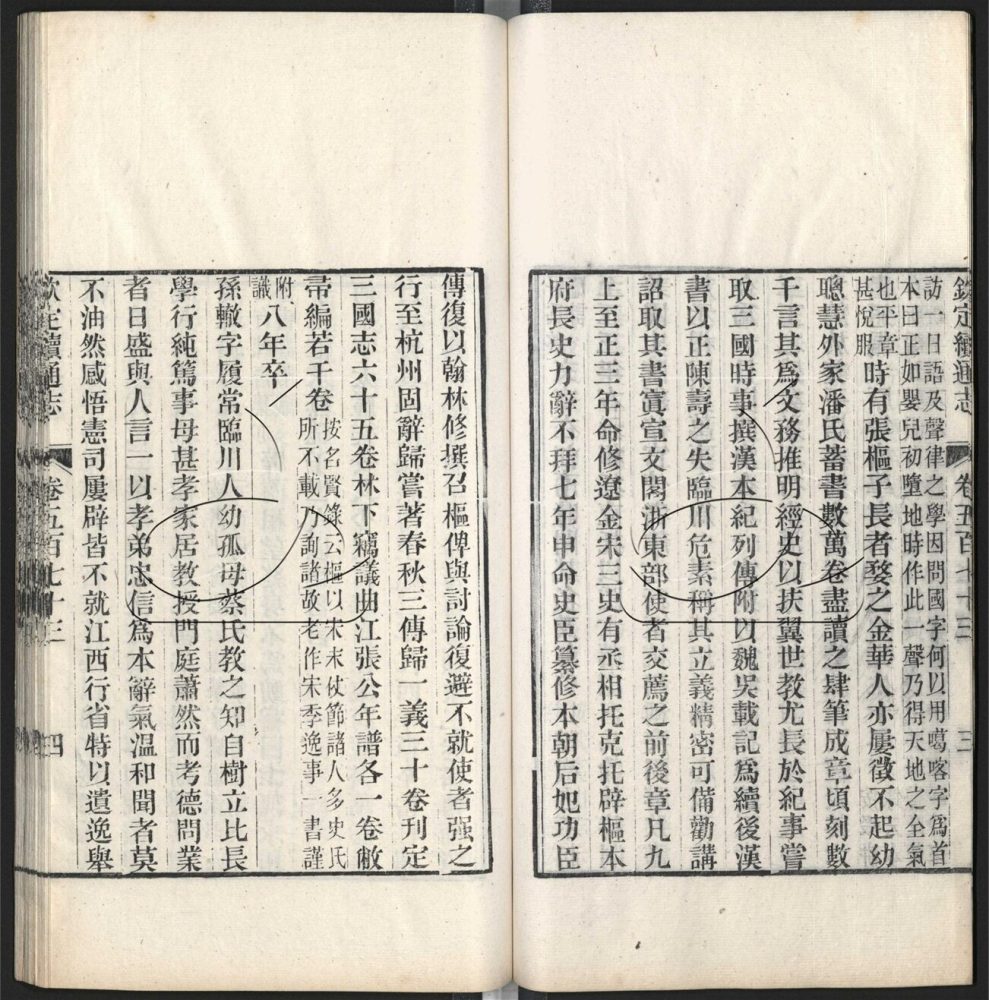 欽定續通志
卷五百七十三
三
訪一日語及聲律之學因問國字何以用噶喀字為首
本曰正如嬰兒初墮地時作此一聲乃得天地之全氣
也平章
甚悅服
時有張樞子長者婺之金華人亦屢徵不起幼
聰慧外家潘氏蓄書數萬卷盡讀之肆筆成章頃刻數
千言其為文務推明經史以扶翼世教尤長於紀事嘗
取三國時事撰漢本紀列傳附以魏吳載記為續後漢
書以正陳壽之失臨川危素稱其立義精密可備勸講
詔取其書寘宣文閣浙東部使者交薦之前後章凡九
上至正三年命修遼金宋三史有丞相托克托辟樞本
府長史力辭不拜七年申命史臣纂修本朝后妃功臣
傳復以翰林修撰召樞俾與討論復避不就使者强之
行至杭州固辭歸嘗著春秋三傳歸一義三十卷刊定
三國志六十五卷林下竊議曲江張公年譜各一卷敝
帚編若干卷
按名賢錄云樞以宋末仗節諸人多史氏
所不載乃詢諸故老作宋季逸事一書謹
附
識
八年卒
孫轍字履常臨川人幼孤母蔡氏教之知自樹立比長
學行純篤事母甚孝家居教授門庭蕭然而考德問業
者日盛與人言一以孝弟忠信為本辭氣溫和聞者莫
不油然感悟憲司屢辟皆不就江西行省特以遺逸舉
欽定續通志
卷五百七十三
四